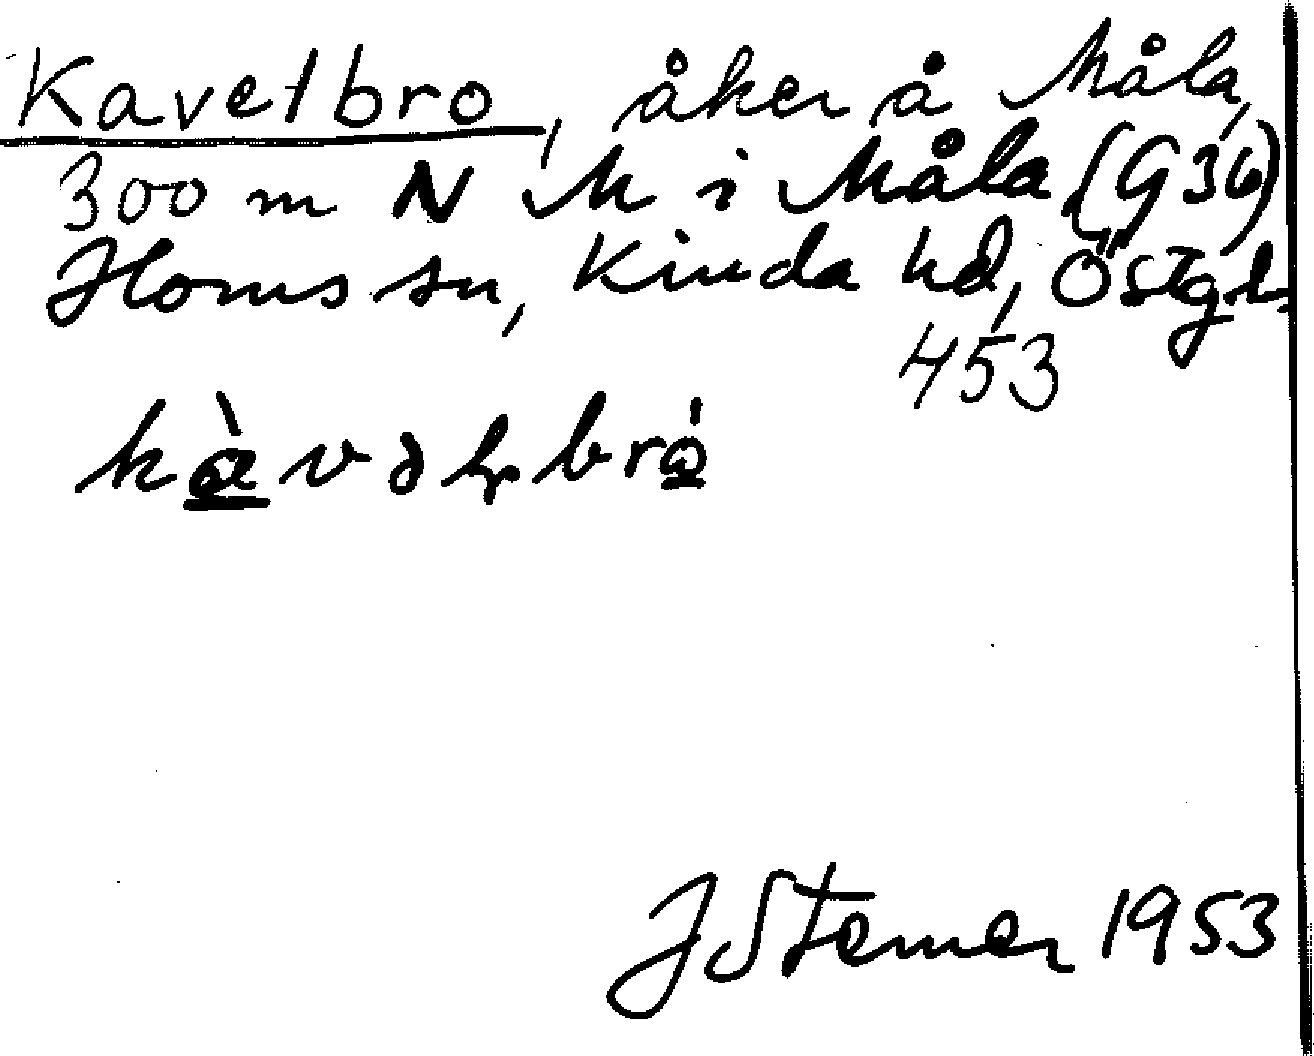 Kavelbro, åker å Måla,
300 m N M i Måla (G36)
Horns sn, Kinda hd, Östgl.
453
kàvəlbró
J Stemer 1953